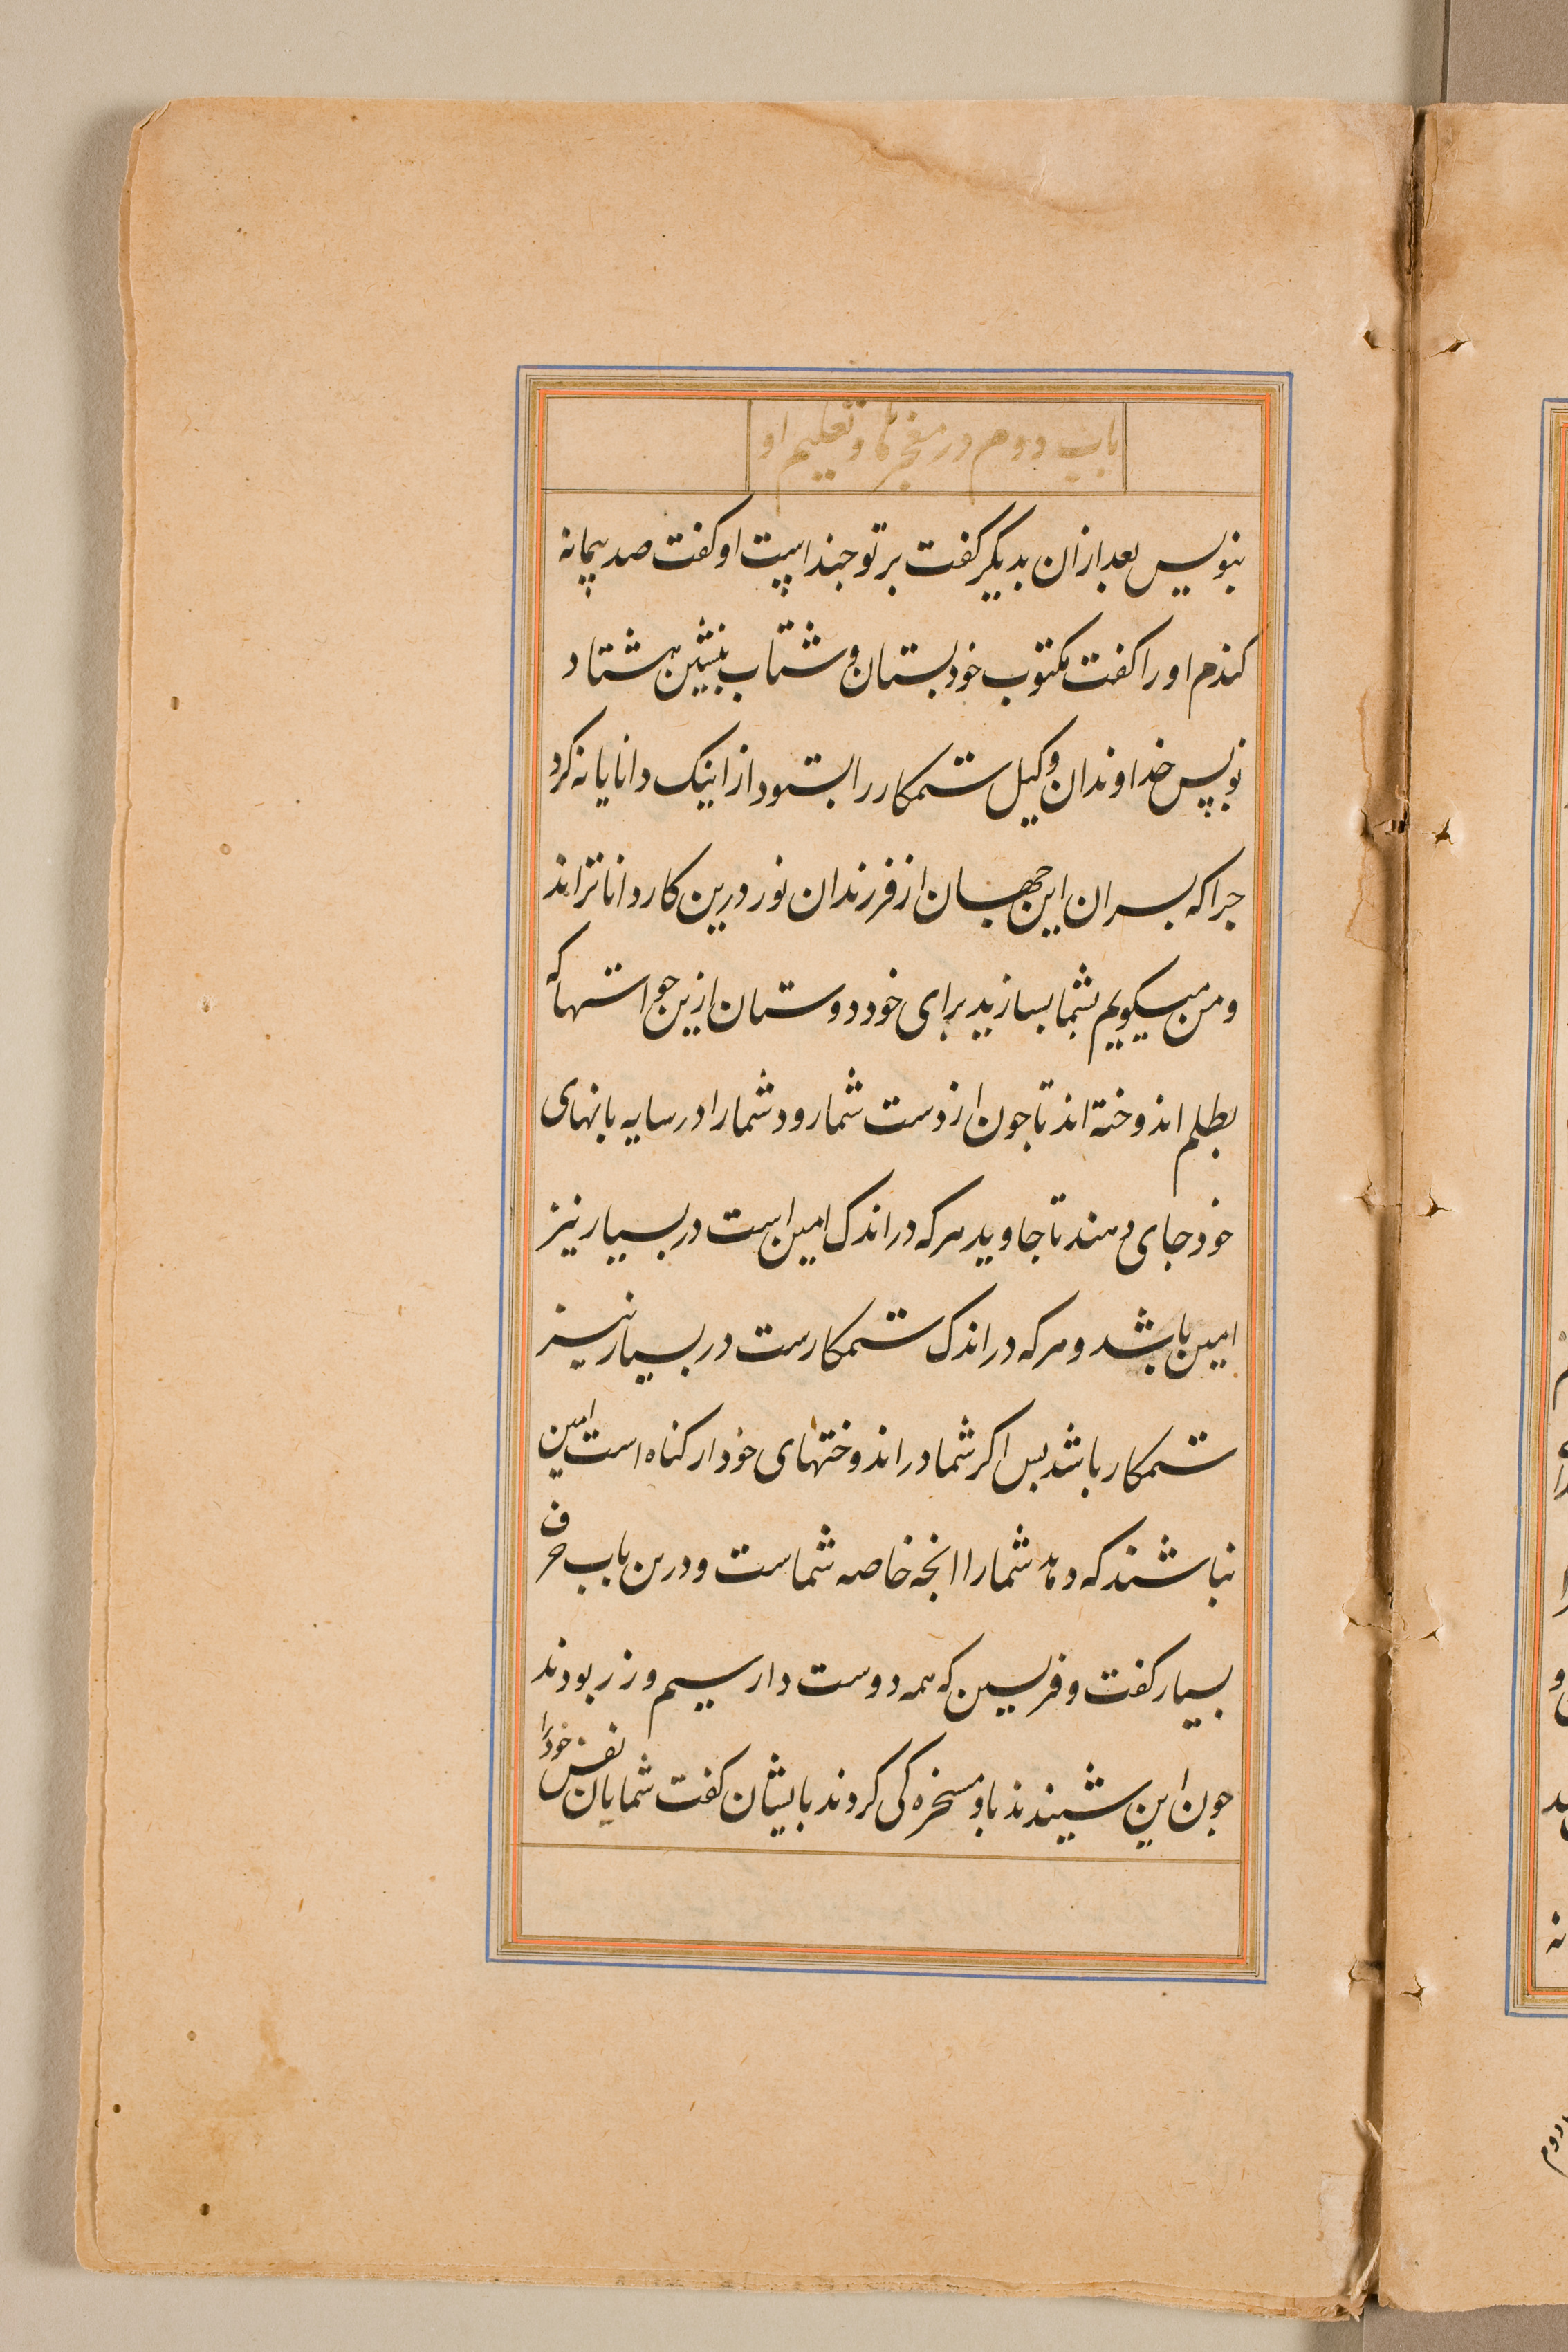 باب دوم در معجزها و تعلیم او
بنویس بعد ازان بدیکر کفت بر تو جند است او کفت صد پیمانه
کندم او را کفت مکتوب خود بستان و شتاب بنشین هشتاد
نویس خداوندان وکیل ستمکار را بستود از اینک دانایانه کرد
جرا که پسران این جهان از فرزندان نور درین کار داناتر اند
و من میکویم بشما بسازید برای خود دوستان ازین خواستها که
بظلم اندوخته اند تا جون از دست شما رود شما را در سایه بانهای
خود جای دهند تا جاوید هر که در اندک امین است در بسیار نیز
امین باشد و هر که در اندک ستمکارست در بسیار نیز
ستمکار باشد بس اکر شما در اندوختهای خود ار کناه است امین
نباشند که دهد شما را انجه خاصه شماست و درین باب حرف
بسیار کفت و فریسین که همه دوست دار سیم و زر بودند
جون این شنیدند باو مسخره کی کردند بایشان کفت شمایان نفس خود را